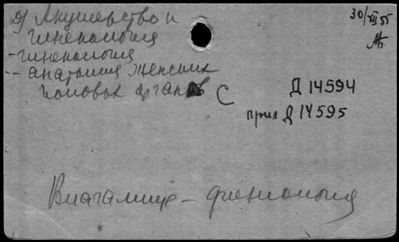 д) Акушерство и
гинекология
- гинекология
- анатомия женских
половых органов С
30/XII 55
Д 14594
прил Д 14595
Влагалище - физиология